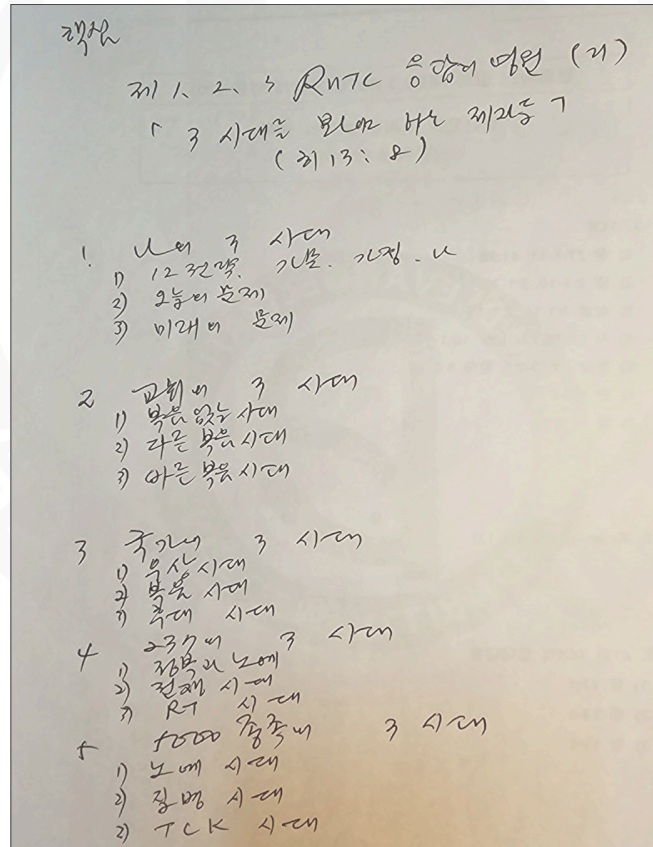 핵심
제 1. 2. 3 RUTC 응답의 영원 (21)
「3 시대를 보는 제자들」
(히 13:8)
1 나의 3 시대
1) 12 전략. 가문. 가정. 나
2) 오늘의 문제
3) 미래의 문제
2 교회의 3 시대
1) 복음 없는 시대
2) 다른 복음 시대
3) 바른 복음 시대
3 국가의 3 시대
1) 우상 시대
2) 복음 시대
3) 후대 시대
4 237의 3 시대
1) 정복과 노예
2) 전쟁 시대
3) RT 시대
5 5000 종족의 3 시대
1) 노예 시대
2) 질병 시대
2) TCK 시대